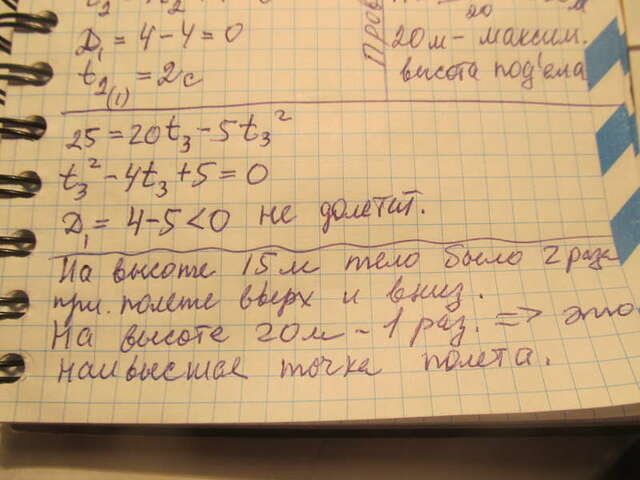 D₁ = 4 - 4 = 0
t₂₍₁₎ = 2с
20
20м - максим.
высота под'ема
25 = 20t₃ - 5t₃²
t₃² - 4t₃ + 5 = 0
D₁ = 4 - 5 < 0 не долетит.
На высоте 15м тело было 2 раза
при полете вверх и вниз.
На высоте 20м - 1 раз. => это
наивысшая точка полета.